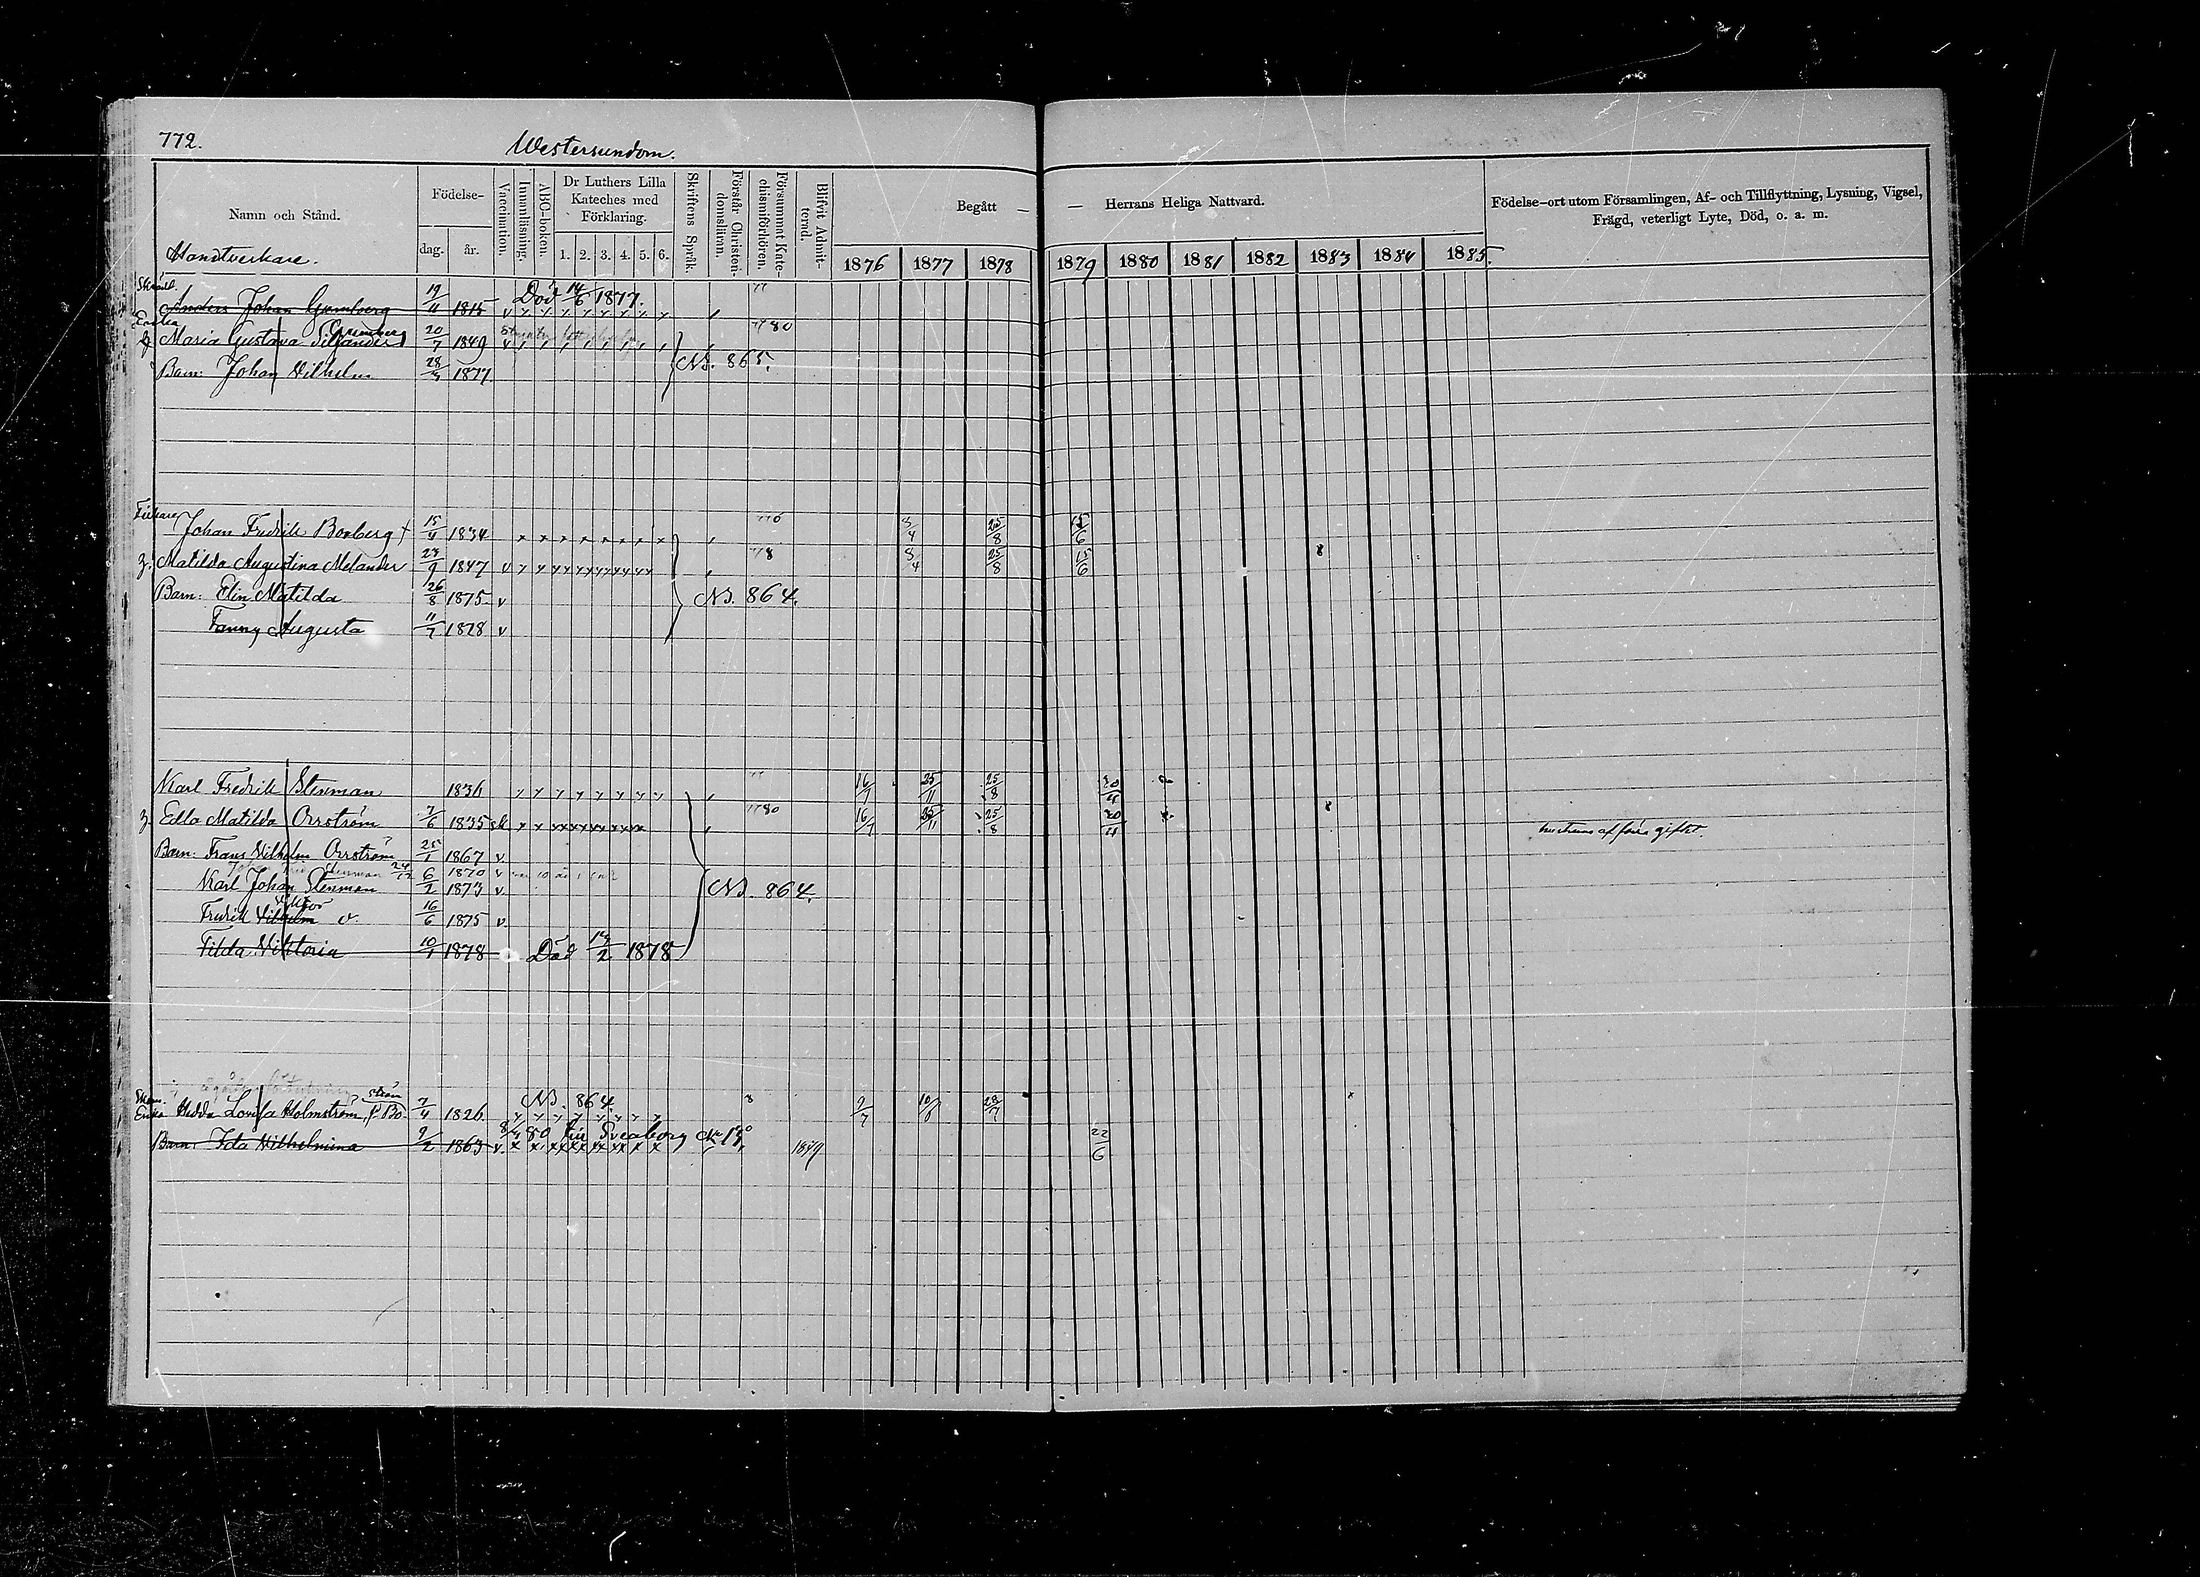 772.
Westersundom.
Namn och Stånd.
Födelse-
dag. år.
Vaccination.
Innanläsning.
ABC-boken.
Dr Luthers Lilla Kateches med Förklaring.
1. 2. 3. 4. 5. 6.
Skriftens Språk.
Förstår Christendomsläran.
Försummat Katechismiförhören.
Blifvit Admitterad.
Begått — — Herrans Heliga Nattvard.
1876 1877 1878 1879 1880 1881 1882 1883 1884 1885.
Födelse-ort utom Församlingen, Af- och Tillflyttning, Lysning, Vigsel,
Frägd, veterligt Lyte, Död, o. a. m.
Handtverkare.
Anders Johan Grunberg 19/11 1815 v Död 14/6 1877.
Enka
Maria Gustava Siljander Grunberg 20/7 1849 v 80
Barn: Johan Wilhelm 28/3 1877 N3. 865.
Johan Fredrik Boxberg 15/4 1834 8/4 25/8 15/6
Matilda Augustina Melander 27/9 1847 v 78 8/4 25/8 15/6
Barn: Elin Matilda 26/8 1875 v N3. 864.
Fanny Augusta 11/7 1878 v
Karl Fredrik Stenman 1836 16/7 25/11 25/8 20/4
Edla Matilda Orrström 7/6 1835 80 16/7 25/11 25/8 20/4
Barn: Frans Wilhelm Orrström 25/1 1867 v
1870 v
Karl Johan Stenman 6/2 1873 v N3. 864.
Fredrik Wilhelm 16/6 1875 v
Tilda Viktoria 10/1 1878 Död 14/2 1878
Enka Hedda Lovisa Holmström 7/4 1826 N3. 864. 9/7 10/6 28/7
Barn: Ida Wilhelmina 9/2 1863 v 80 till Sveaborg 1879 22/6